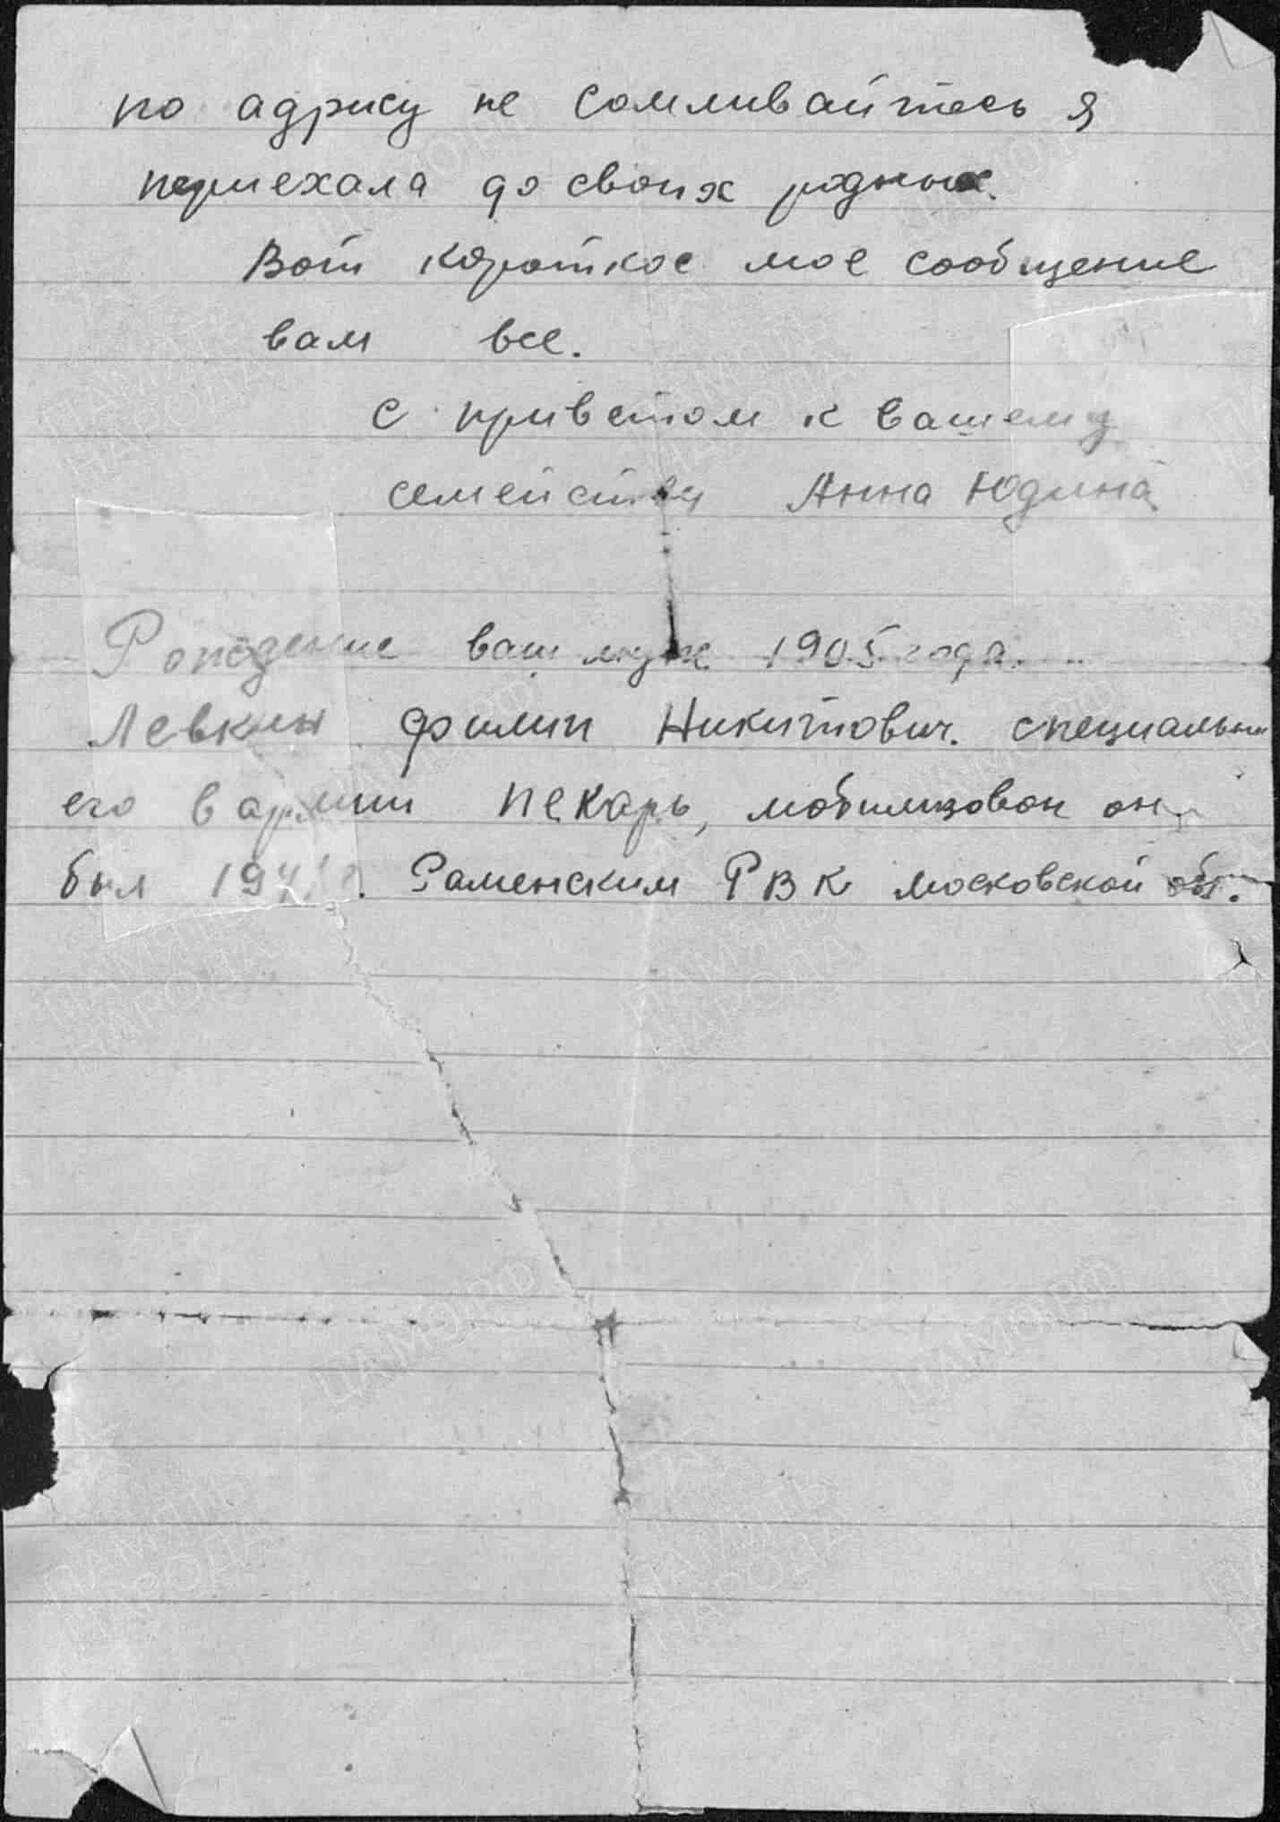 по адрису не сомливайтесь я
периехала до своих родных.
Вот короткое мое сообщение
вам все.
с приветом к вашему
семейству Анна Юдина
Рождение ваш муж 1905 года.
Левкин Филип Никитович. специальн
его в армии пекарь, мобилизован он
был 194 г. Раменским РВК московской об.
ЦАМО РФ
ПАМЯТЬ
НАРОДА